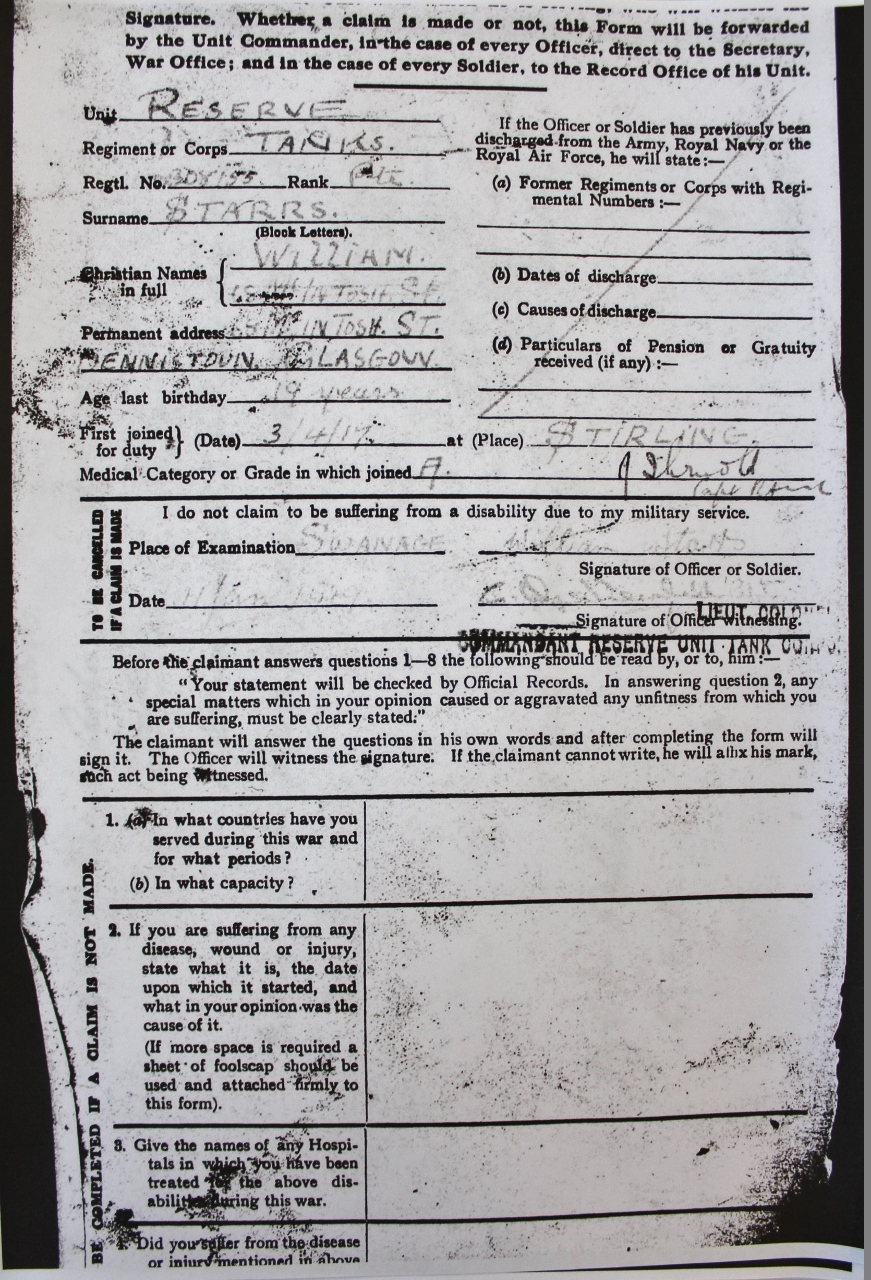 Signature. Whether a claim is made or not, this Form will be forwarded
by the Unit Commander, in the case of every Officer, direct to the Secretary,
War Office; and in the case of every Soldier, to the Record Office of his Unit.
Unit RESERVE
Regiment or Corps TANKS.
Regtl. No. Rank Pte.
Surname STARRS.
(Block Letters).
Christian Names in full { WILLIAM.
Permanent address McINTOSH. ST.
DENNISTOUN. GLASGOW.
Age last birthday 19 years
If the Officer or Soldier has previously been
discharged from the Army, Royal Navy or the
Royal Air Force, he will state:—
(a) Former Regiments or Corps with Regi-
mental Numbers :—
(b) Dates of discharge
(c) Causes of discharge
(d) Particulars of Pension or Gratuity
received (if any) :—
First joined for duty } (Date) 3/4/17. at (Place) STIRLING.
Medical Category or Grade in which joined A.
TO BE CANCELLED
IF A CLAIM IS MADE
I do not claim to be suffering from a disability due to my military service.
Place of Examination SWANAGE William Starrs
Signature of Officer or Soldier.
Date
Signature of Officer witnessing.
LIEUT. COLONEL
COMMANDANT RESERVE UNIT TANK CORPS.
Before the claimant answers questions 1—8 the following should be read by, or to, him :—
"Your statement will be checked by Official Records. In answering question 2, any
special matters which in your opinion caused or aggravated any unfitness from which you
are suffering, must be clearly stated."
The claimant will answer the questions in his own words and after completing the form will
sign it. The Officer will witness the signature. If the claimant cannot write, he will affix his mark,
such act being witnessed.
BE COMPLETED IF A CLAIM IS NOT MADE.
1. (a) In what countries have you
served during this war and
for what periods ?
(b) In what capacity ?
2. If you are suffering from any
disease, wound or injury,
state what it is, the date
upon which it started, and
what in your opinion was the
cause of it.
(If more space is required a
sheet of foolscap should be
used and attached firmly to
this form).
3. Give the names of any Hospi-
tals in which you have been
treated for the above dis-
abilities during this war.
4. Did you suffer from the disease
or injury mentioned in above